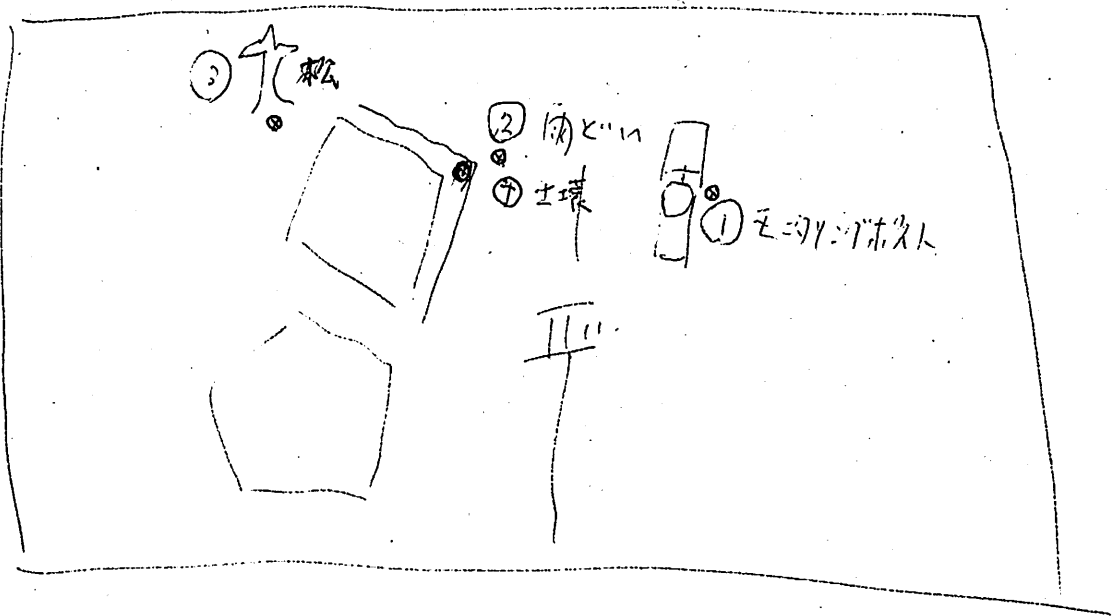 ③ 松
② 雨どい
④ 土壌
① モニタリングポスト